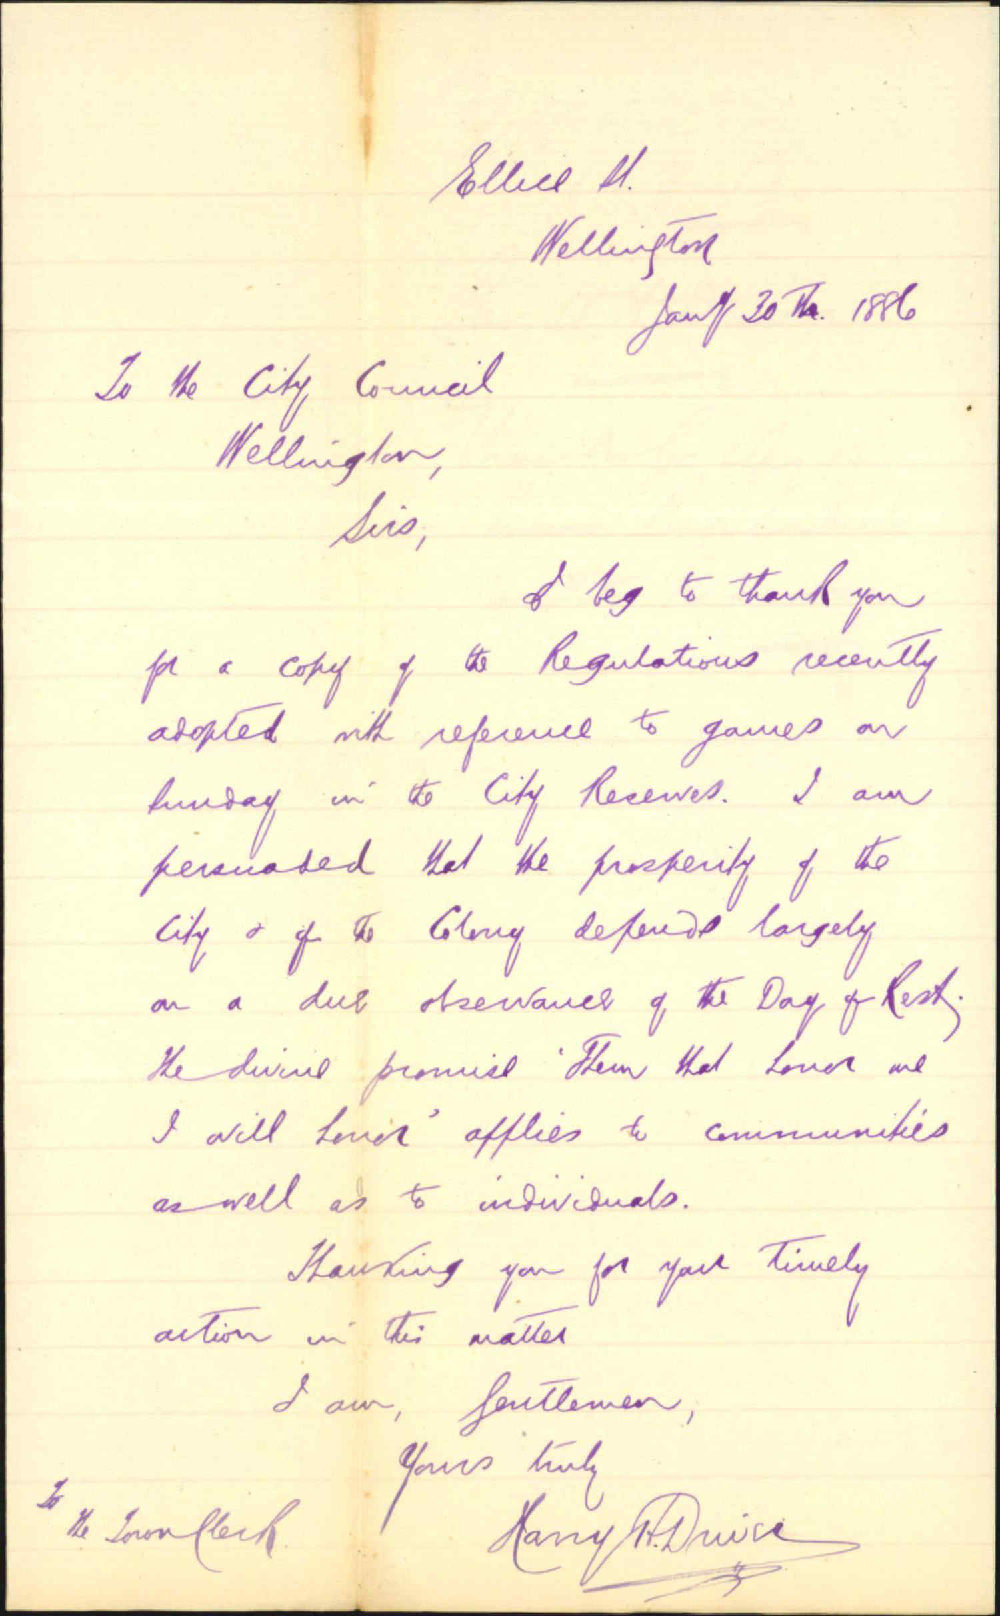 Ellice St.
Wellington
Jany 30th. 1886
To the City Council
Wellington,
Sirs,
I beg to thank you
for a copy of the Regulations recently
adopted with reference to games on
Sunday in the City Reserves. I am
persuaded that the prosperity of the
City & of the Colony depends largely
on a due observance of the Day of Rest;
the divine promise 'Them that honor me
I will honor' applies to communities
as well as to individuals.
Thanking you for your timely
action in this matter
I am, Gentlemen,
Yours truly
To
the Town Clerk
Harry H. Driver